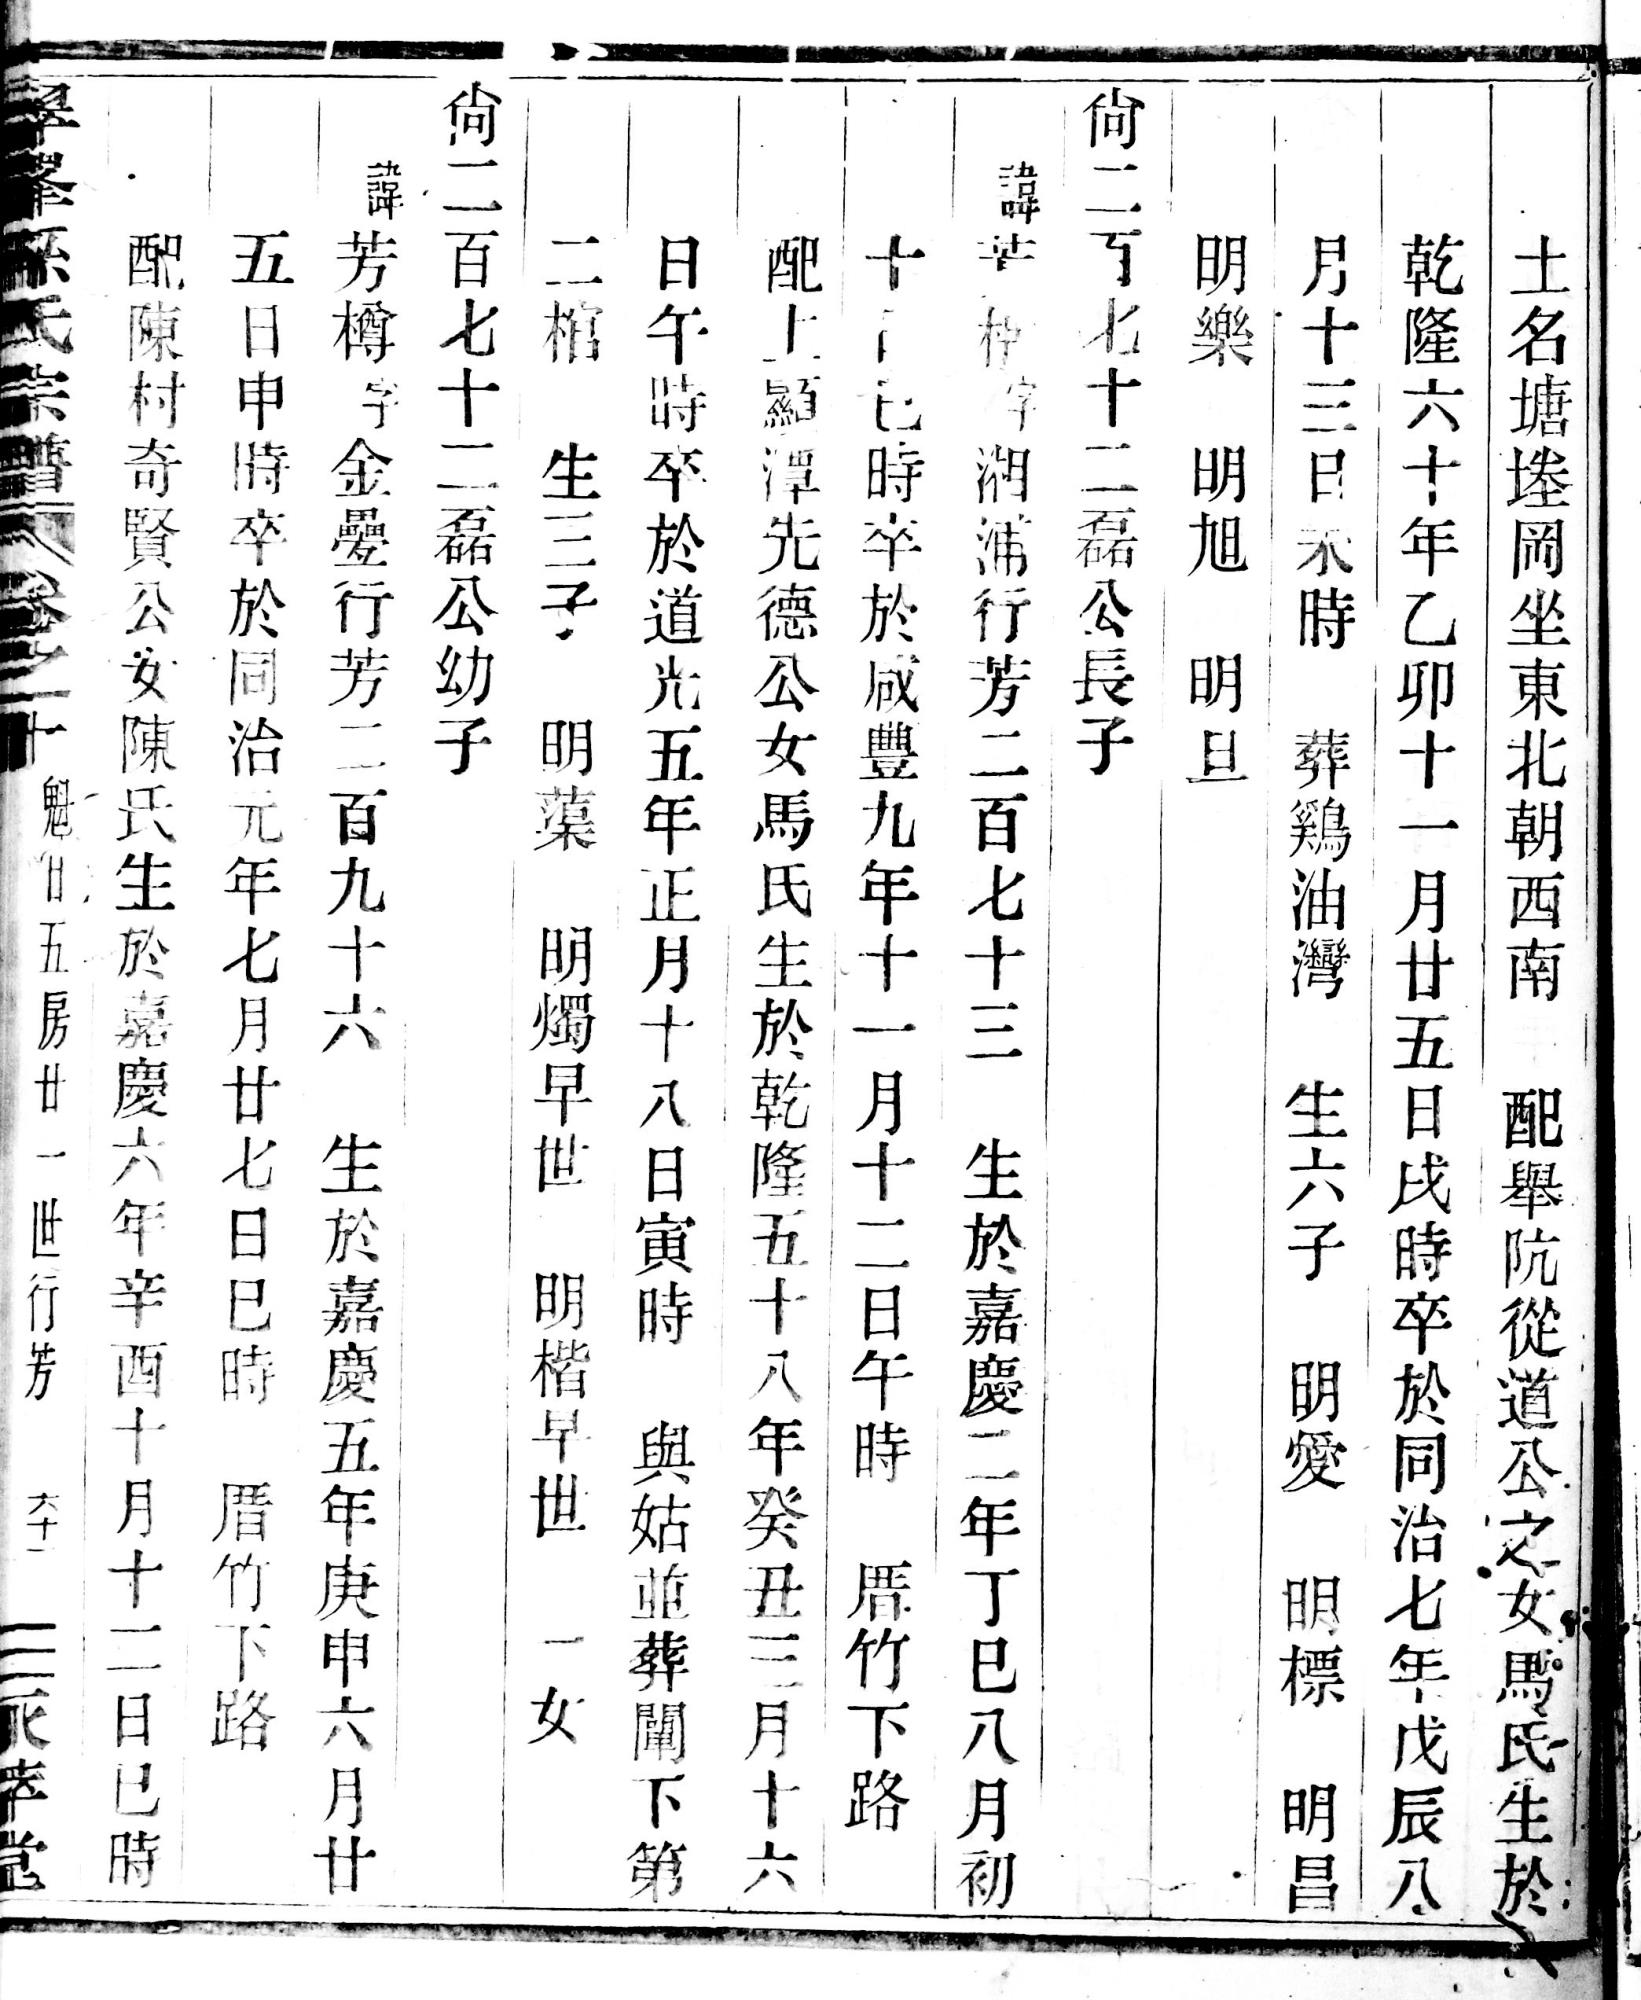 土名塘墘岡坐東北朝西南 配舉阬從道公之女馬氏生於
乾隆六十年乙卯十一月廿五日戌時卒於同治七年戊辰八
月十三日未時 葬鷄油灣 生六子 明愛 明標 明昌
明樂 明旭 明旦
尙二百七十二磊公長子
諱芳 字湘浦行芳二百七十三 生於嘉慶二年丁巳八月初
十日巳時卒於咸豐九年十一月十二日午時 厝竹下路
配上顯潭先德公女馬氏生於乾隆五十八年癸丑三月十六
日午時卒於道光五年正月十八日寅時 與姑並葬闈下第
二棺 生三子 明蕖 明燭早世 明楷早世 一女
尙二百七十二磊公幼子
諱芳樽字金罍行芳二百九十六 生於嘉慶五年庚申六月廿
五日申時卒於同治元年七月廿七日巳時 厝竹下路
配陳村奇賢公女陳氏生於嘉慶六年辛酉十月十二日巳時
孫氏宗譜 卷之十 魁廿五房廿一世行芳 六十一 孝堂